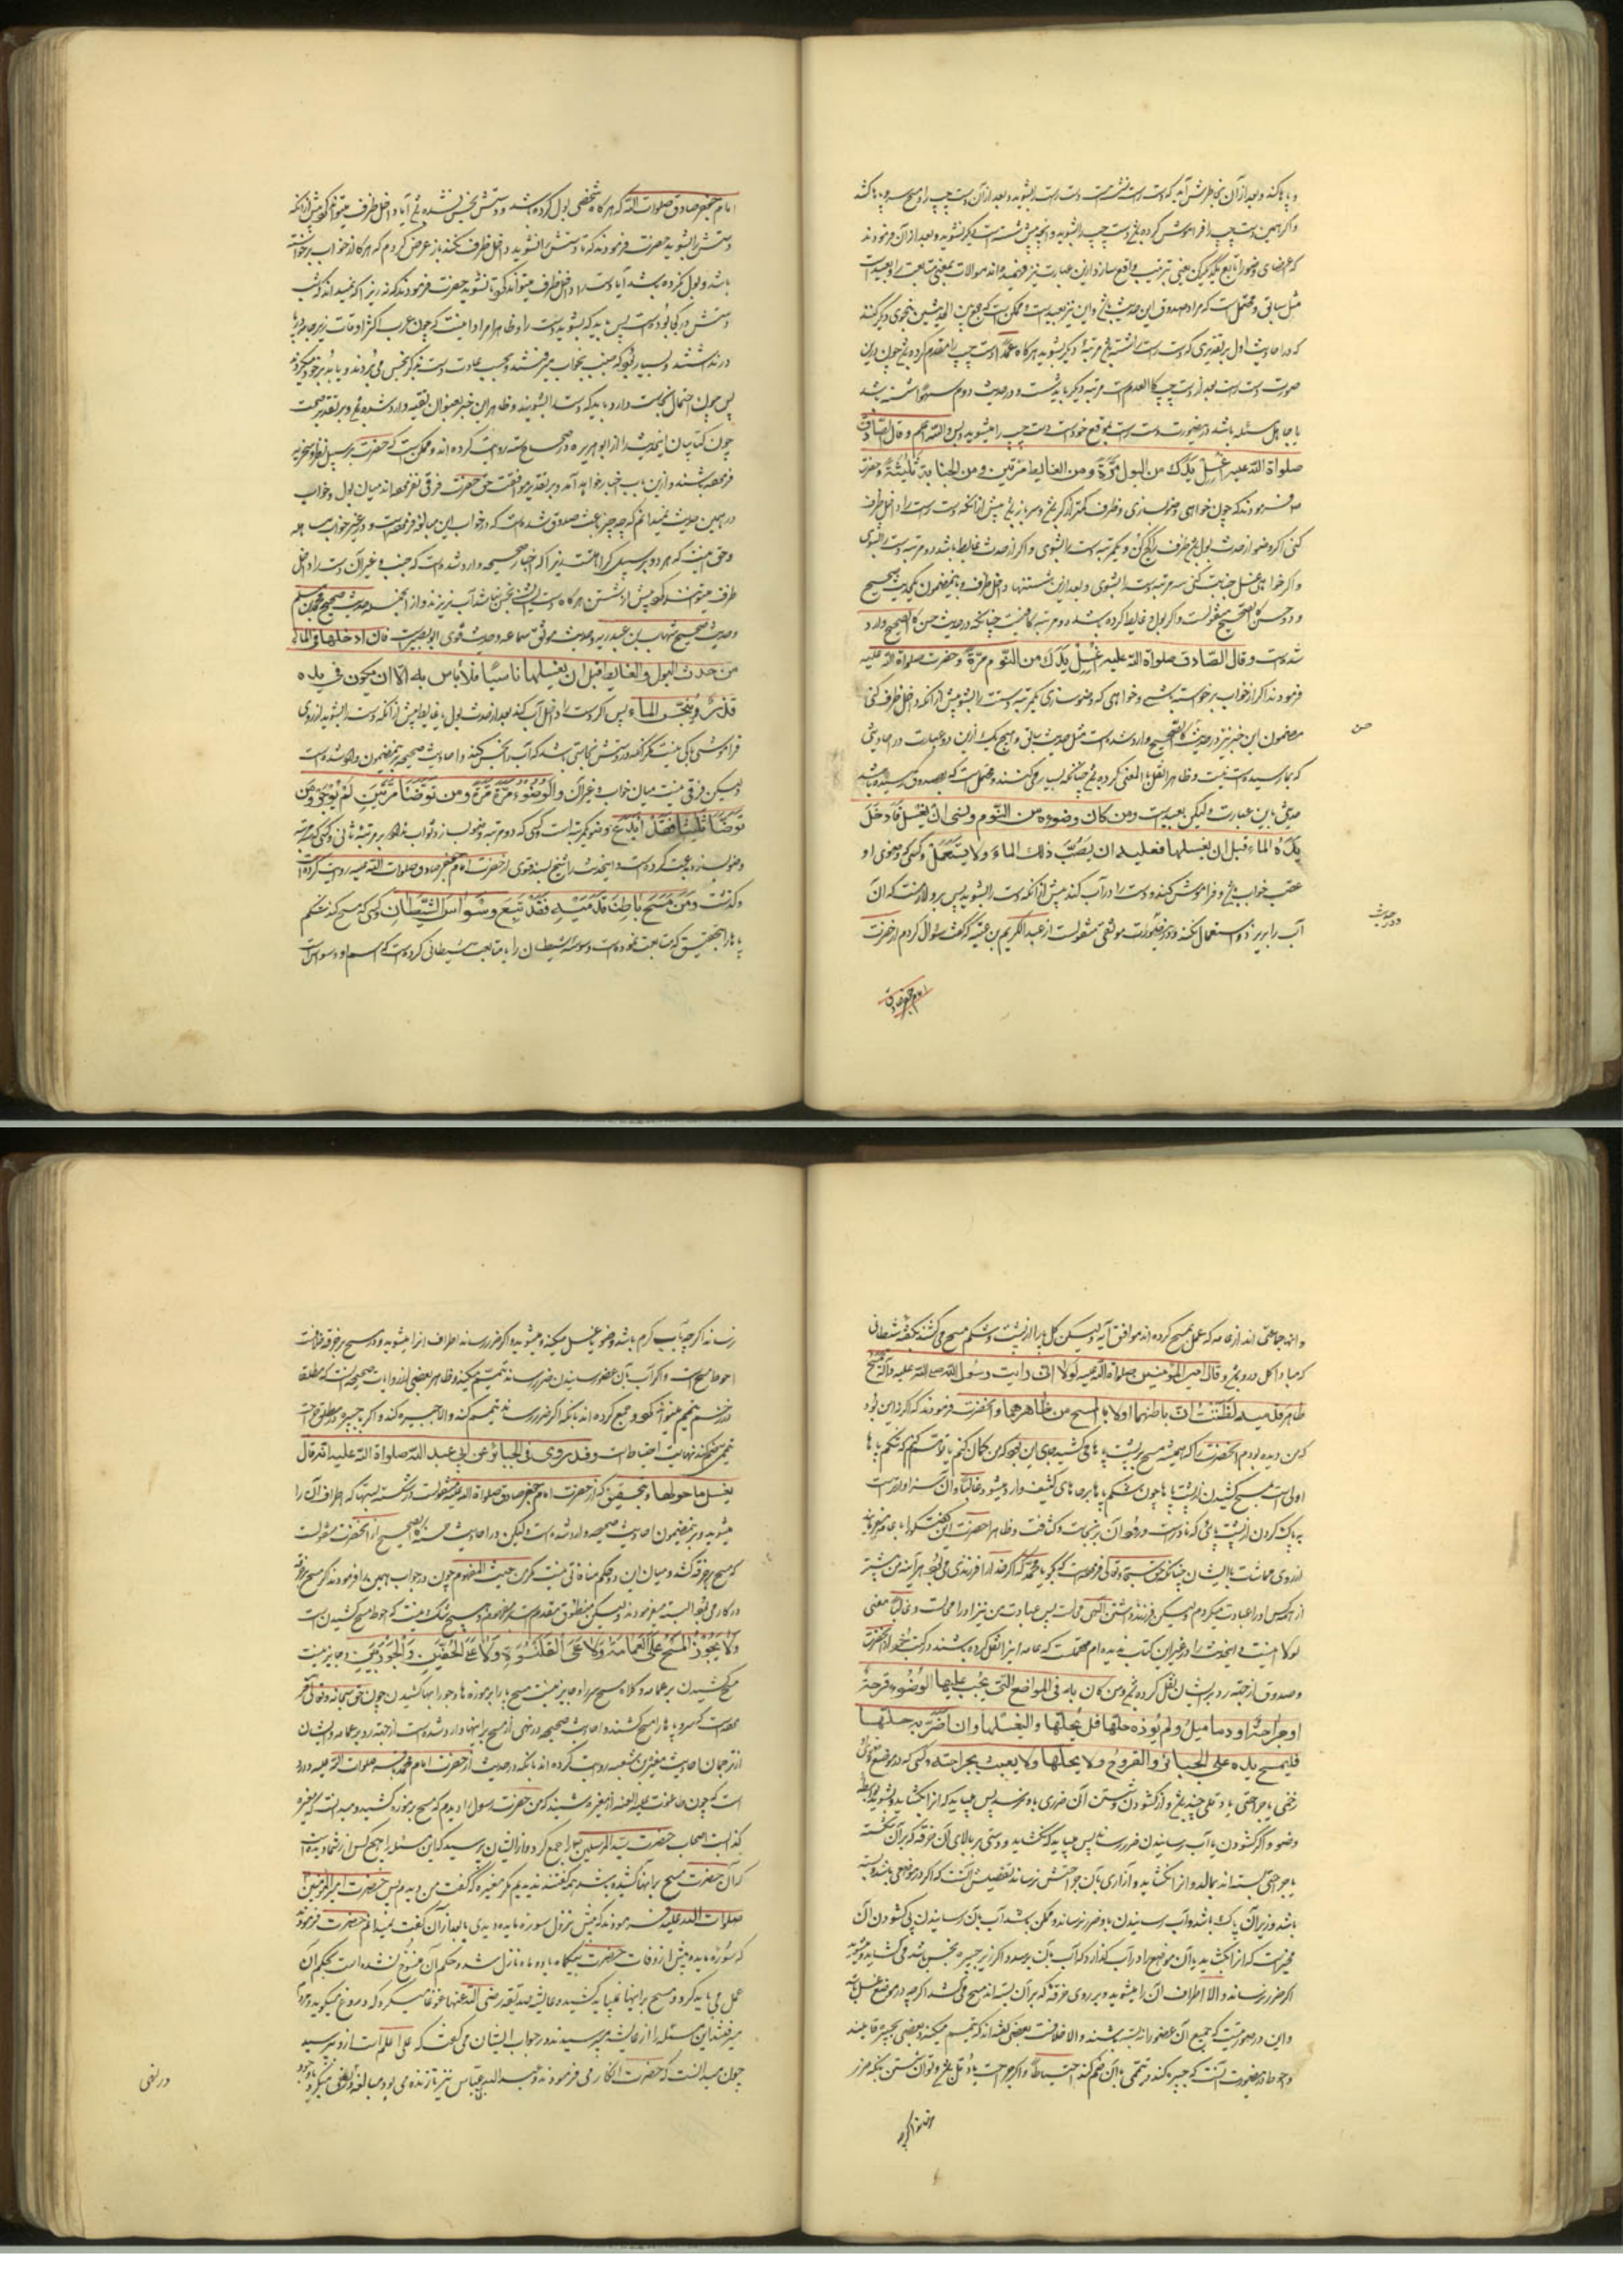 و پاها کند و بعد از آن بخاطرش آید که دست راست نشسته است دست راست را بشوید و بعد از آن دست چپ را و مسح سر و پا بکشد
و اگر همین دست چپ را فراموش کرده باشد دست چپ را بشوید و آنچه پیش شسته است دیگر نشوید و بعد از آن فرمودند
که اعضای وضو را تابع یکدیگر کن یعنی بترتیب واقع ساز و ازین عبارت نیز فهمیده‌اند موالات بمعنی متابعت را و بعید است
مثل سابق و محتمل است که مراد صدوق این حدیث باشد و این نیز بعید است و ممکن است که جمع بین الحدیثین بنحوی دیگر کنند
که در احادیث اول بر تقدیری که دست راست را شسته باشد مرتبه دیگر بشوید هرگاه عمداً دست چپ را مقدم کرده باشد چون درین
صورت دست راست بعد از دست چپ کالعدم است مرتبه دیگر باید شست و در حدیث دوم سهواً شسته باشد
یا جاهل مسئله باشد درین صورت دست راست بموقع خود است دست چپ را میشوید و بس و الله اعلم و قال الصّادق
صلواة اللّه علیه اِغْسِلْ یَدَکَ من البول مَرَّةً و من الغایط مَرَّتین و من الجنابة ثَلثةً و حضرت
فرمودند که چون خواهی وضو سازی و ظرف کمتر از کر باشد و سر باز باشد پیش از آنکه دست راست را داخل ظرف
کنی اگر وضو از حدث بول باشد ظرف را کج کن و یکمرتبه دست را بشوی و اگر از حدث غایط باشد دو مرتبه دست را بشوی
و اگر خواهی غسل جنابت کنی سه مرتبه دست را بشوی و بعد ازین شستنها داخل ظرف و باینمضمون یک حدیث صحیح
و دو حسن کالصحیح منقولست و اگر بول و غایط کرده باشد دو مرتبه کافیست چنانکه در حدیث حسن کالصحیح وارد
شده است و قال الصّادق صلواة اللّه علیه اِغْسِلْ یَدَکَ من النّوم مَرَّةً و حضرت صلواة اللّه علیه
فرمودند اگر از خواب برخواسته باشی و خواهی که وضو سازی یکمرتبه دستت را بشو پیش از آنکه داخل ظرف کنی
مضمون این خبر نیز در حدیث کالصحیح وارد شده است مثل حدیث سابق و هیچ یک ازین دو عبارت در احادیثی
حسن
که بما رسیده است نیست و ظاهراً نقل بالمعنی کرده باشد چنانکه بسیار میکنند و محتمل است که بصدوق رسیده باشد
حدیثی باین عبارت و لیکن بعید است و من کان وضوءه من النّوم و نسی ان یغسل فَاَدخَلَ
یَدَهُ الماء قبل ان یغسلها فعلیه ان یَصُبَّ ذلك الماء و لا یستعمل و کسی که وضوی او
عقب خواب باشد و فراموش کند و دست را در آب کند پیش از آنکه دست را بشوید پس برو لازمست که آن
آب را بریزد و استعمال نکند و در موثقی منقولست از عبد الکریم بن عتبه که گفت سؤال کردم از حضرت
و در حدیث
امام جعفر صادق
امام جعفر صادق صلوات الله که هرگاه شخصی بول کرده باشد و دستش نجس نشده باشد آیا داخل ظرف میتواند کرد پیش از آنکه
دستش را بشوید حضرت فرمودند که نه تا دستش را نشوید داخل ظرف نکند باز عرض کردم که هرگاه از خواب برخواسته
باشد و بول نکرده باشد آیا دست را داخل ظرف میتواند کرد تا نشوید حضرت فرمودند که نه زیرا که نمیداند که شب
دستش در کجا بوده است پس باید که بشوید دست را و ظاهراً مراد اینست که چون عرب اکثر اوقات زیر جامه در پا
نداشتند و بسیار بود که جنب بخواب میرفتند و بحسب عادت دست بذکر نجس می‌بردند
پس چون احتمال نجاست دارد باید که دست را بشویند و ظاهراً این خبر بعنوان تقیه وارد شده باشد و بر تقدیر صحت
چون کتابیان اینحدیث را از ابو هریره در صحاح سته روایت کرده‌اند و ممکن است که حضرت بر سبیل
فرموده باشند و ازین باب اخبار خواهد آمد و بر تقدیر موافقت حق حضرت فرقی نفرموده‌اند میان بول و خواب
درهمین حدیث نمیدانم که چه چیز باعث صدوق شده است که در خواب این مبالغه فرموده است و در غیر خواب مساهله
و حق اینست که هر دو بر سبیل کراهتست زیرا که اخبار صحیحه وارد شده است که جنب و غیر آن دست را داخل
ظرف میتوانند کرد پیش از شستن هرگاه دست ایشان نجس نباشد آب نریزند و از آنجمله حدیث صحیح محمد بن مسلم
و حدیث صحیح شهاب بن عبد ربه و حدیث موثق سماعه و حدیث قوی ابو بصیر است فان ادخلها فی الماء
من حدث البول و الغایط قبل ان یغسلها ناسیًا فلا بأس به الّا ان یکون فی یده
قَذَرٌ یُنَجِّسُ الماء پس اگر دست را داخل آب کند بعد از حدث بول یا غایط پیش از آنکه دست را بشوید از روی
فراموشی باکی نیست مگر آنکه در دستش نجاستی باشد که آب را نجس کند و احادیث صحیحه برینمضمون وارد شده است
و لیکن فرقی نیست میان خواب و غیر آن و الوُضُوء مَرَّة مَرَّة و من تَوَضَّأ مَرَّتَیْنِ لَمْ یُوجَر و من
تَوَضَّأ ثَلثًا فَقَدْ اَبْدَعَ و وضو یکمرتبه است و کسی که دو مرتبه وضو بسازد ثواب ندارد بر مرتبه ثانی و کسی که سه مرتبه
وضو بسازد بدعت کرده است و اینحدیث را شیخ بسند قوی از حضرت امام جعفر صادق صلوات الله علیه روایت کرده است
و گذشت و مَن مَسَحَ باطِنَ قَدَمَیْهِ فَقَدْ تَبِعَ وسْواسَ الشَّیْطانِ و کسی که مسح کند شکم
پاها را بتحقیق که متابعت نموده است وسوسه شیطان را یا متابعت شیطانی کرده است که اسم او وسواس است
و اینها جماعتی‌اند از عامه که عمل بمسح کرده‌اند موافق آیه و لیکن کل پا را از پشت و شکم مسح می‌کشند بگفته شیطانی
که مبادا کل در رود باشد و قال امیر المؤمنین صلواة اللّه علیه لولا انّی رایت رسول اللّه صلی الله علیه و آله یمسح
ظاهر قدمیه لظننت انّ باطنهما اولی بالمسح من ظاهرهما و آنحضرت فرمودند که اگر نه این بود
که من دیده بودم آنحضرت را که همیشه مسح بر پشت پاها می‌کشید جای این بود که من گمان کنم که شکم پاها
اولی است بمسح کشیدن از پشت پاها چون شکم پاها بر جاهای کثیف وارد میشود غالباً و آن سزاوارتر است
به پاک کردن از پشت پایی که نادر است ورود آن بر نجاست و کثافت و ظاهراً حضرت این گفتگو را با عامه میفرمودند
از روی مماشات با ایشان چنانکه حق سبحانه و تعالی فرموده است که بگو یا محمد که اگر خدا را فرزندی می‌بود هر آینه من پیشتر
از همه کس او را عبادت میکردم و لیکن فرزند داشتن الهی محالست پس عبادت من نیز او را محالست و غالباً معنی
لولا اینست و اینحدیث را در غیر این کتاب ندیده‌ام محتملست که عامه اینرا نقل کرده باشند در کتب خود از آنحضرت
و صدوق از جهة رد بر ایشان نقل کرده باشد و من کان به فی المواضع التی یجب علیها الوُضُوء قرحة
او جراحة او دمامیل و لم یؤذه حلّها فلیحلّها و لیغسلها و ان اضرّ به حلّها
فلیمسح یده علی الجبائر و القروح و لا یحلّها و لا یعبث بجراحته و کسی که در مواضع وضوی
زخمی یا جراحتی یا دملی چند باشد و از گشودن و شستن آن ضرری باو نرسد پس میباید که آنرا بگشاید و بشوید
وضو و اگر گشودن یا آب رسانیدن ضرر رساند پس میباید که نگشاید و دستی بر بالای آن خرقه که بر آن شکسته
یا جراحتی بسته‌اند بمالد و آنرا نگشاید و آزاری بآن جراحتش نرساند تفصیلش آنست که اگر در موضعی باشد و بسته
باشد و زیر آن پاک باشد و آب رسانیدن باو ضرر نرساند و ممکن باشد آب بآن رسانیدن بی گشودن آن
مخیرست که آنرا بگشاید یا آن موضع را در آب گذارد که آب بآن برسد و اگر زیر جبیره نجس باشد می‌گشاید و میشوید
اگر ضرر نرساند و الا اطراف آن را میشوید و بر روی خرقه که بر آن بسته‌اند مسح می‌کشد اگرچه در موضع غسل باشد
و این در صورتیست که جمیع آن عضو را نبسته باشند و الا خلافست بعضی گفته‌اند که تیمم میکند و بعضی بجبیره قایلند
و احوط درینصورت آنست که جبیره کند و تیممی بآن ضم کند احتیاطاً و اگر جراحت یا دمل باشد و توان شستن بآنکه ضرر
رساند اگرچه
رساند اگرچه بآب گرم باشد وضو یا غسل میکند و میشوید و اگر ضرر رساند اطراف آنرا میشوید و در مسح بر خرقه خلافست
احوط مسح است و اگر آب بآن عضو رسانیدن ضرر رساند تیمم میکند و ظاهر بعضی از روایات صحیحه آنست که مطلقا
در زخم تیمم میتواند کرد و جمع کرده‌اند بآنکه اگر ضرر رساند تیمم کند و الا جبیره کند و اگر با جبیره در مطلق جراحت
تیمم ضم کند نهایت احتیاط است و قد روی فی الجبائر عن ابی عبد اللّه صلواة اللّه علیه انّه قال
یغسل ما حولها و بتحقیق که از حضرت امام جعفر صادق صلواة الله علیه منقولست در شکسته بستها که اطراف آن را
میشوید و برینمضمون احادیث صحیحه وارد شده است و لیکن در احادیث حسنه کالصحیح از آنحضرت منقولست
که مسح بر خرقه کشد و میان این دو حکم منافاتی نیست مگر من حیث المفهوم چون در جواب همین را فرمودند که مسح بر خرقه
در کار می‌بود البته میفرمودند و لیکن منطوق مقدم است بر مفهوم و هیچ شک نیست که احوط مسح کشیدن است
وَ لا یَجُوزُ المَسْحُ عَلَی العَمامَة وَ لا عَلَی القَلَنْسُوَةِ وَ لا عَلَی الخُفَّیْنِ وَ الجَوْرَبَیْنِ و جایز نیست
مسح کشیدن بر عمامه و کلاه مسح سر را و جایز نیست مسح پا را بر موزه‌ها و جورابها کشیدن چون حق سبحانه و تعالی فرموده
است که سر و پاها را مسح کشند و احادیث صحیحه در نهی از مسح بر اینها وارد شده است از جهة رد بر عامه و ایشان
از ترجمان احادیث مغیرة بن شعبه روایت کرده‌اند بآنکه در حدیث از حضرت امام محمد باقر صلوات الله علیه وارد
است که چون معاویه علیه اللعنه از مغیره شنید که من حضرت رسول را دیدم که مسح بر موزه کشید و میدانست که مغیره
کذابست اصحاب حضرت سید المرسلین را جمع کرد و از ایشان پرسید که این مسئله را هیچ کس از شما دیده است
که آنحضرت مسح بر اینها کشیده باشد همه گفتند ندیدیم مگر مغیره که گفت من دیدم پس حضرت امیر المؤمنین
صلوات الله علیه فرمودند که پیش نزول سوره مایده دیدی یا بعد از آن گفت نمیدانم حضرت فرمودند
که سوره مایده پیش از وفات حضرت بیکماه یا دو ماه نازل شد و حکم آن منسوخ نشده است بحکم آن
عمل می‌باید کرد و مسح بر اینها نمیباید کشید و عایشه صدیقه رضی الله عنها غوغا میکرد که دروغ میگوید و مردم
میرفتند این مسئله را از عایشه میپرسیدند در جواب ایشان می‌گفت که علی اعلم است از او بپرسید
چون میدانست که حضرت انکار می فرمودند و عبد الله بن عباس نیز تا زنده می بود مبالغه در نفی میکرد و با وجود
در نفی